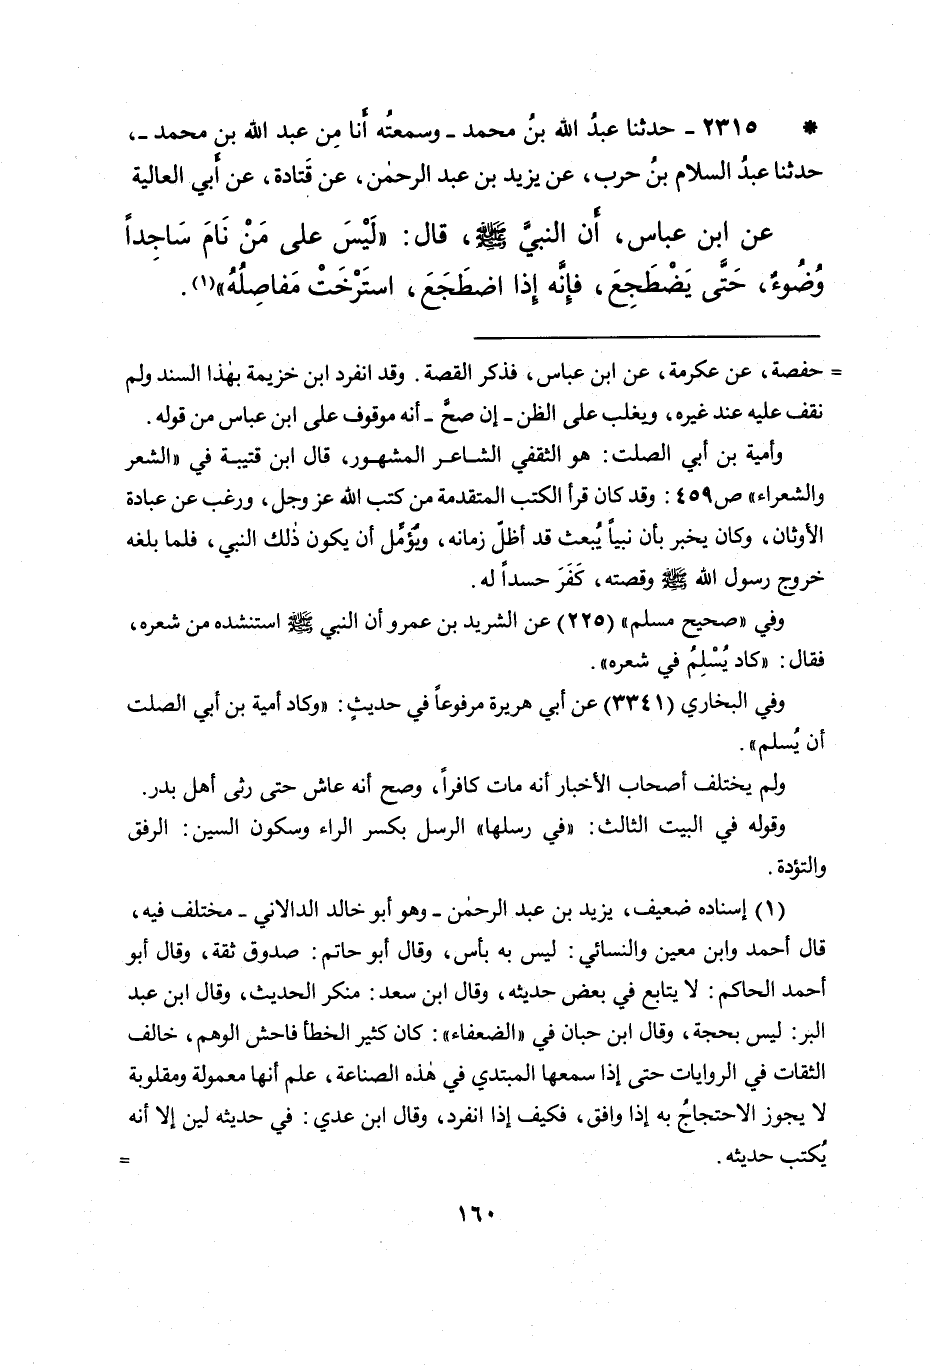 * ٢٣١٥ - حدثنا عبدُ الله بنُ محمد - وسمعتُه أَنا مِن عبد الله بن محمد -،
حدثنا عبدُ السلام بنُ حرب، عن يزيد بن عبد الرحمٰن، عن قَتادة، عن أَبي العالية
عن ابن عباس، أَن النبيَّ ﷺ، قال: «لَيْسَ على مَنْ نَامَ سَاجِداً
وُضُوءٌ، حَتَّى يَضْطَجِعَ، فإِنَّه إِذا اضطَجَعَ، استَرْخَتْ مَفاصِلُهُ»(١).
= حفصة، عن عكرمة، عن ابن عباس، فذكر القصة. وقد انفرد ابن خزيمة بهٰذا السند ولم
نقف عليه عند غيره، ويغلب على الظن - إن صحَّ - أنه موقوف على ابن عباس من قوله.
وأمية بن أبي الصلت: هو الثقفي الشاعر المشهور، قال ابن قتيبة في «الشعر
والشعراء» ص٤٥٩: وقد كان قرأ الكتب المتقدمة من كتب الله عز وجل، ورغب عن عبادة
الأوثان، وكان يخبر بأن نبياً يُبعث قد أظلّ زمانه، ويُؤمِّل أن يكون ذٰلك النبي، فلما بلغه
خروج رسول الله ﷺ وقصته، كَفَرَ حسداً له.
وفي «صحيح مسلم» (٢٢٥) عن الشريد بن عمرو أن النبي ﷺ استنشده من شعره،
فقال: «كاد يُسْلِمُ في شعره».
وفي البخاري (٣٣٤١) عن أبي هريرة مرفوعاً في حديثٍ: «وكاد أمية بن أبي الصلت
أن يُسلم».
ولم يختلف أصحاب الأخبار أنه مات كافراً، وصح أنه عاش حتى رثى أهل بدر.
وقوله في البيت الثالث: «في رسلها» الرسل بكسر الراء وسكون السين: الرفق
والتؤدة.
(١) إسناده ضعيف، يزيد بن عبد الرحمٰن - وهو أبو خالد الدالاني - مختلف فيه،
قال أحمد وابن معين والنسائي: ليس به بأس، وقال أبو حاتم: صدوق ثقة، وقال أبو
أحمد الحاكم: لا يتابع في بعض حديثه، وقال ابن سعد: منكر الحديث، وقال ابن عبد
البر: ليس بحجة، وقال ابن حبان في «الضعفاء»: كان كثير الخطأ فاحش الوهم، خالف
الثقات في الروايات حتى إذا سمعها المبتدي في هٰذه الصناعة، علم أنها معمولة ومقلوبة
لا يجوز الاحتجاجُ به إذا وافق، فكيف إذا انفرد، وقال ابن عدي: في حديثه لين إلا أنه
يُكتب حديثه. =
١٦٠